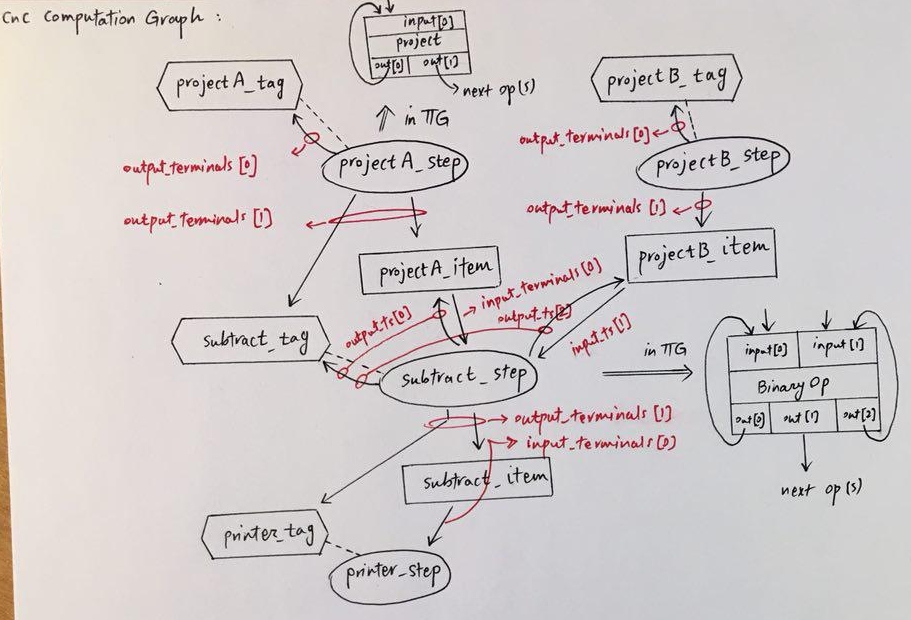 CnC Computation Graph :
input[0]
project
out[0] out[1]
next op(s)
in TTG
projectA_tag
projectB_tag
output_terminals[0]
output_terminals[0]
projectA_step
projectB_step
output_terminals[1]
output_terminals[1]
projectA_item
projectB_item
input_terminals[0]
output_ts[0]
output_ts[2]
input_ts[1]
subtract_tag
subtract_step
in TTG
input[0] input[1]
Binary Op
out[0] out[1] out[2]
next op(s)
output_terminals[1]
input_terminals[0]
subtract_item
printer_tag
printer_step